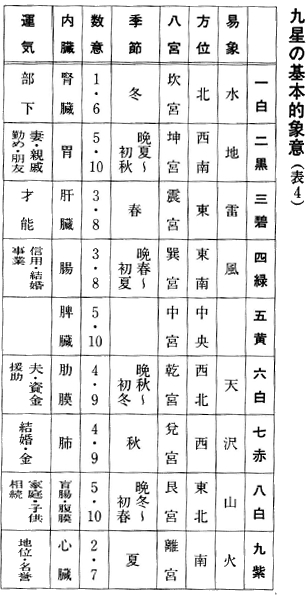 九星の基本的象意（表4）
一白 二黒 三碧 四緑 五黄 六白 七赤 八白 九紫
易象 水 地 雷 風 天 沢 山 火
方位 北 西南 東 東南 中央 西北 西 東北 南
八宮 坎宮 坤宮 震宮 巽宮 中宮 乾宮 兌宮 艮宮 離宮
季節 冬 晩夏〜初秋 春 晩春〜初夏 晩秋〜初冬 秋 晩冬〜初春 夏
数意 1・6 5・10 3・8 3・8 5・10 4・9 4・9 5・10 2・7
内臓 腎臓 胃 肝臓 腸 脾臓 肋膜 肺 盲腸・腹膜 心臓
運気 部下 妻・親戚 勤め・朋友 才能 信用・結婚 事業 夫・資金 援助 結婚・金 家庭・子供 相続 地位・名誉